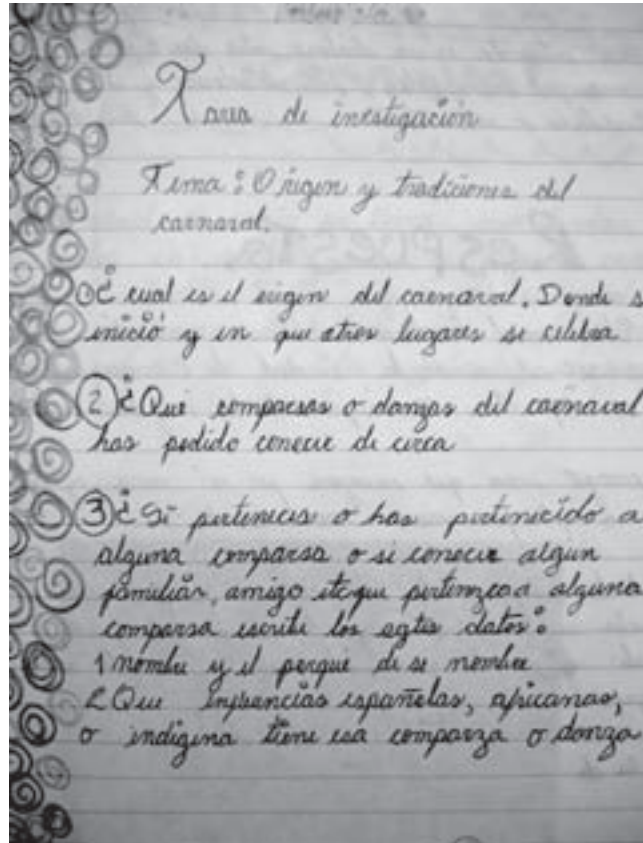 Tarea de investigación
Tema: Origen y tradiciones del
carnaval.
¿cual es el origen del carnaval. Donde s
inició y en que otros lugares se celebra
2 ¿Que comparsas o danzas del carnaval
has podido conocer de cerca
3 ¿Si perteneces o has pertenecido a
alguna comparsa o si conocer algun
familiar, amigo etc que pertenezca a alguna
comparsa escribe los sgtes datos:
1 nombre y el porque de se nombre
2 Que influencias españolas, africanas,
o indigena tiene esa comparza o danza